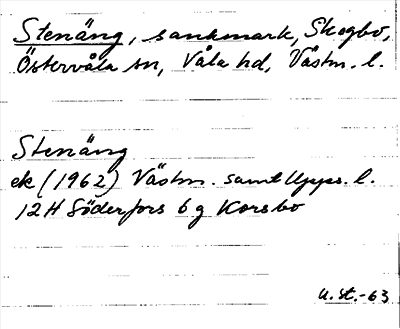 Stenäng, sankmark, Skogbo,
Östervåla sn, Våla hd, Västm. l.
Stenäng
ek (1962) Västm. samt Upps. l.
12H Söderfors 6 g Korsbo
U. St.-63